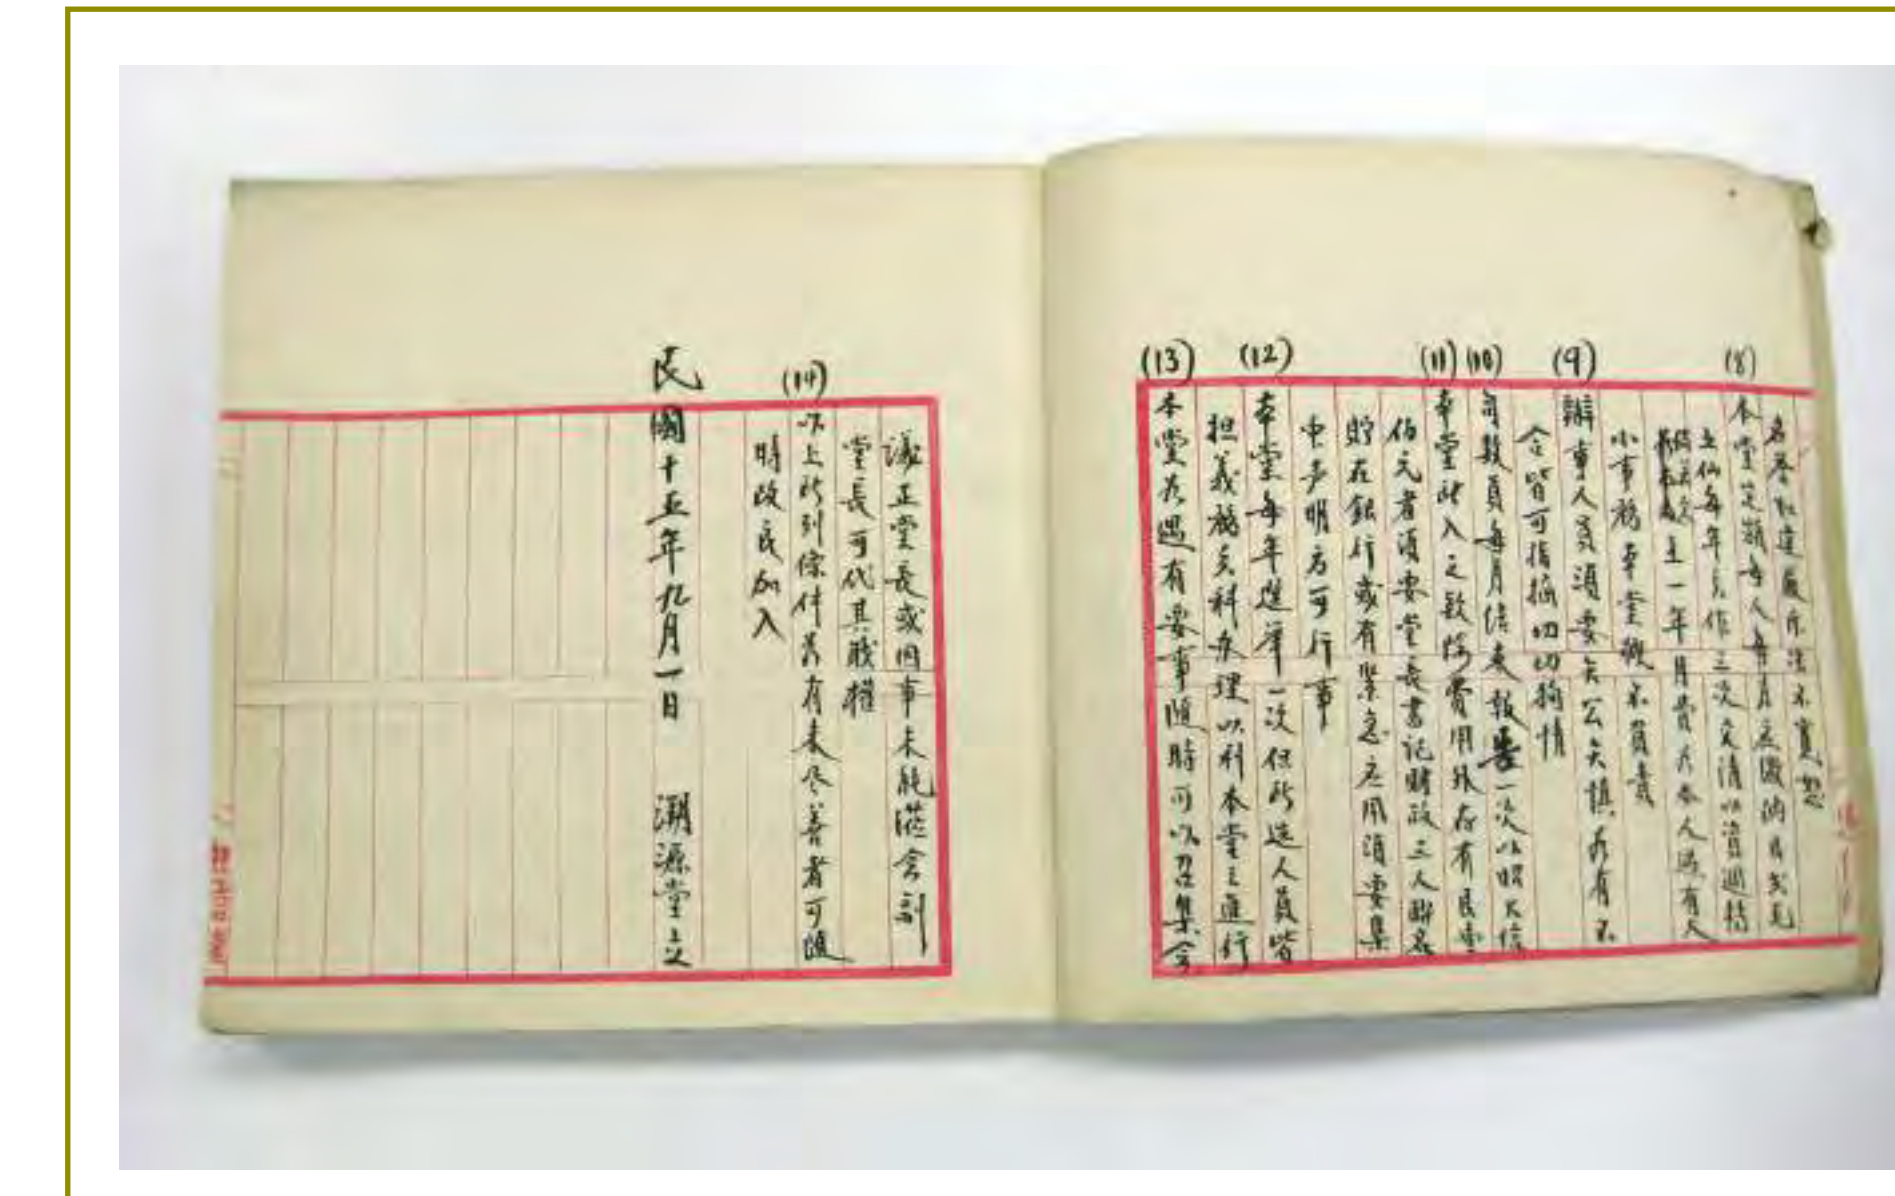 名譽
(8) 本堂定額每人每月應繳納
每年分作三次交清以資週轉
至一年月費若本人遇有大
小事務本堂概不負責
(9) 辦事人員須要矢公矢慎若有不
合皆可指摘切切狥情
(10) 司數員每月結束報告一次以昭大信
(11) 本堂所入之款除費用外存有
佰元者須要堂長書記財政三人聯名
貯在銀行或有緊急應用須要集
衆聲明方可行事
(12) 本堂每年選舉一次但所選人員皆
担義務分科辦理以利本堂之進行
(13) 本堂若遇有要事隨時可以召集會
議正堂長或因事未能蒞會副
堂長可代其職權
(14) 以上所列條件若有未尽善者可隨
時改良加入
民國十五年九月一日 溯源堂立